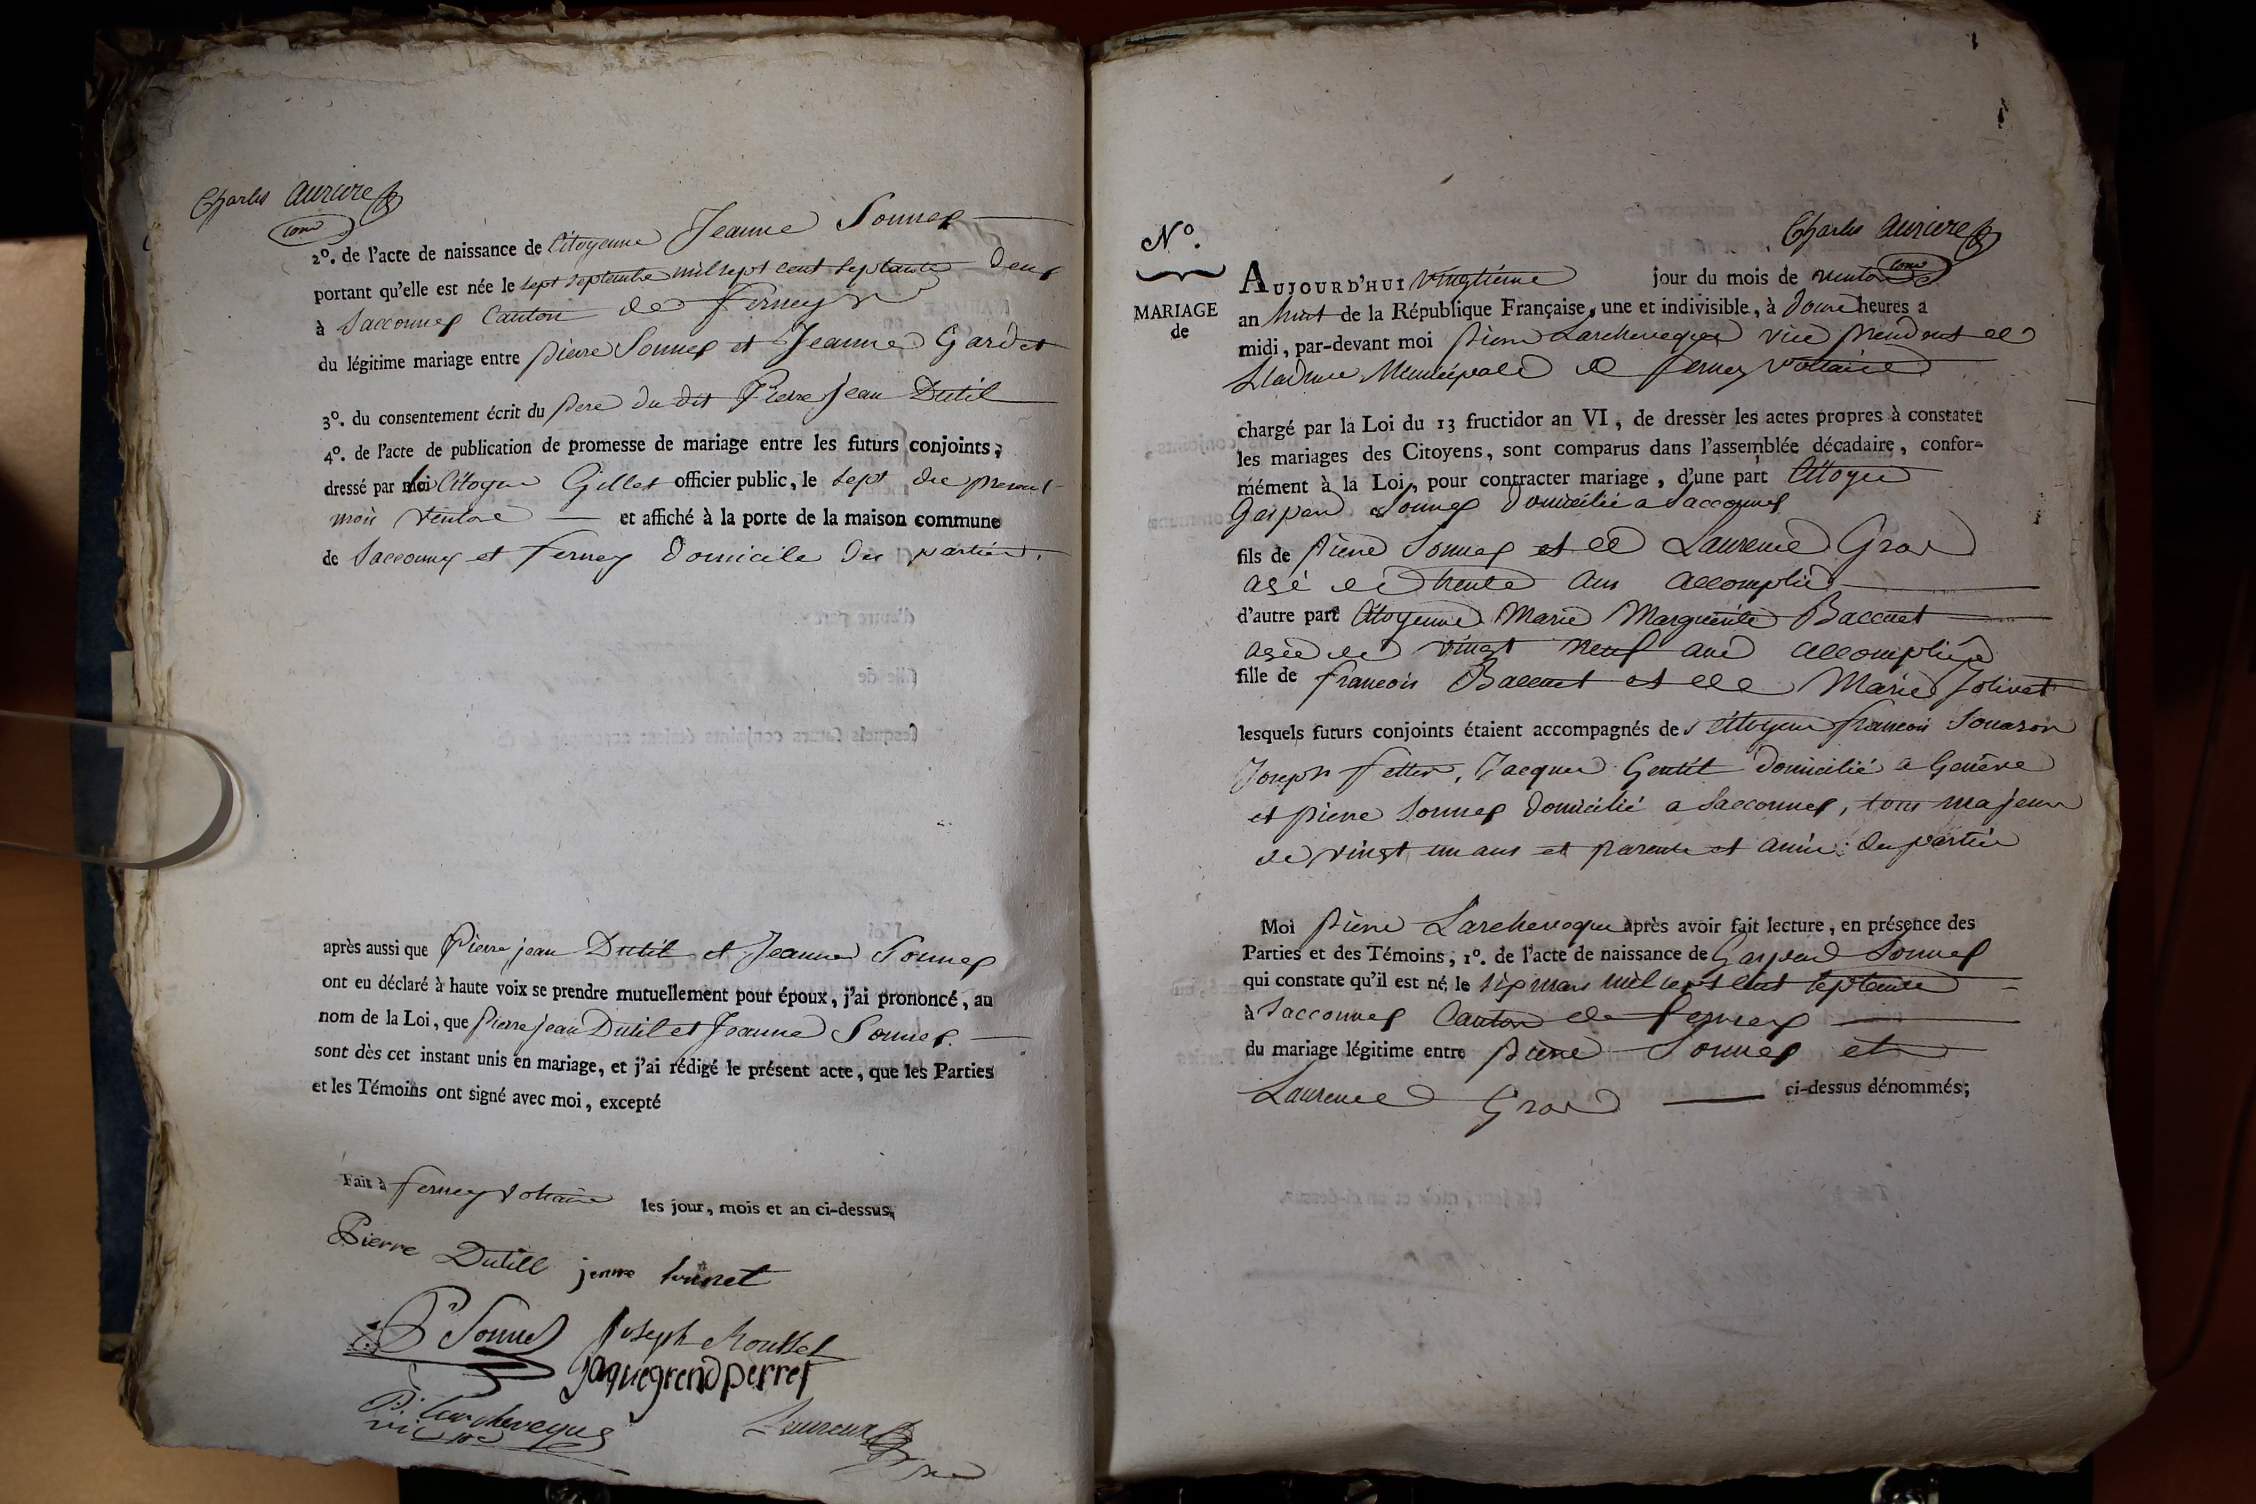 Charles Auriere
2º. de l'acte de naissance de Citoyenne Jeanne Sonnex
portant qu'elle est née le sept septembre mil sept cent septante deux
à Sacconnex Canton de Ferney
du légitime mariage entre pierre Sonnex et Jeanne Gardet
3º. du consentement écrit du pere du dit Pierre jean Dutil
4º. de l'acte de publication de promesse de mariage entre les futurs conjoints,
dressé par le Citoyen Gillet officier public, le sept du present
mois Ventose et affiché à la porte de la maison commune
de Sacconnex et Ferney domicile des parties.
après aussi que Pierre jean Dutil et Jeanne Sonnex
ont eu déclaré à haute voix se prendre mutuellement pour époux, j'ai prononcé, au
nom de la Loi, que Pierre jean Dutil et Jeanne Sonnex.
sont dès cet instant unis en mariage, et j'ai rédigé le présent acte, que les Parties
et les Témoins ont signé avec moi, excepté
Fait à Ferney Voltaire les jour, mois et an ci-dessus,
Pierre Dutill jenne sonnet
P Sonnex Joseph Roussel
jaquegrendperret
P. Larcheveque
Nº.
MARIAGE
de
Charles Auriere
AUJOURD'HUI vingtieme jour du mois de ventose
an huit de la République Française, une et indivisible, à douze heures a
midi, par-devant moi pierre Larcheveque vice president de
Ladmce Municipale de Ferney Voltaire
chargé par la Loi du 13 fructidor an VI, de dresser les actes propres à constater
les mariages des Citoyens, sont comparus dans l'assemblée décadaire, confor-
mément à la Loi, pour contracter mariage, d'une part Citoyen
Gaspard Sonnex domicilié a Sacconnex
fils de pierre Sonnex et de Laurence Gros
agé de trente ans accomplis
d'autre part Citoyenne Marie Marguerite Baccuet
agée de vingt neuf ans accomplis
fille de francois Baccuet et de Marie Jolivet
lesquels futurs conjoints étaient accompagnés des citoyens francois Souaron
Joseph Fetter, Jacques Gentil domicilié a Genève
et pierre Sonnex domicilié a Sacconnex, tous majeurs
de vingt un ans et parents et amis des parties
Moi pierre Larcheveque après avoir fait lecture, en présence des
Parties et des Témoins, 1º. de l'acte de naissance de Gaspard Sonnex
qui constate qu'il est né le six mars mil sept cent septante
à Sacconnex Canton de Ferney
du mariage légitime entre pierre Sonnex et
Laurence Gros ci-dessus dénommés;